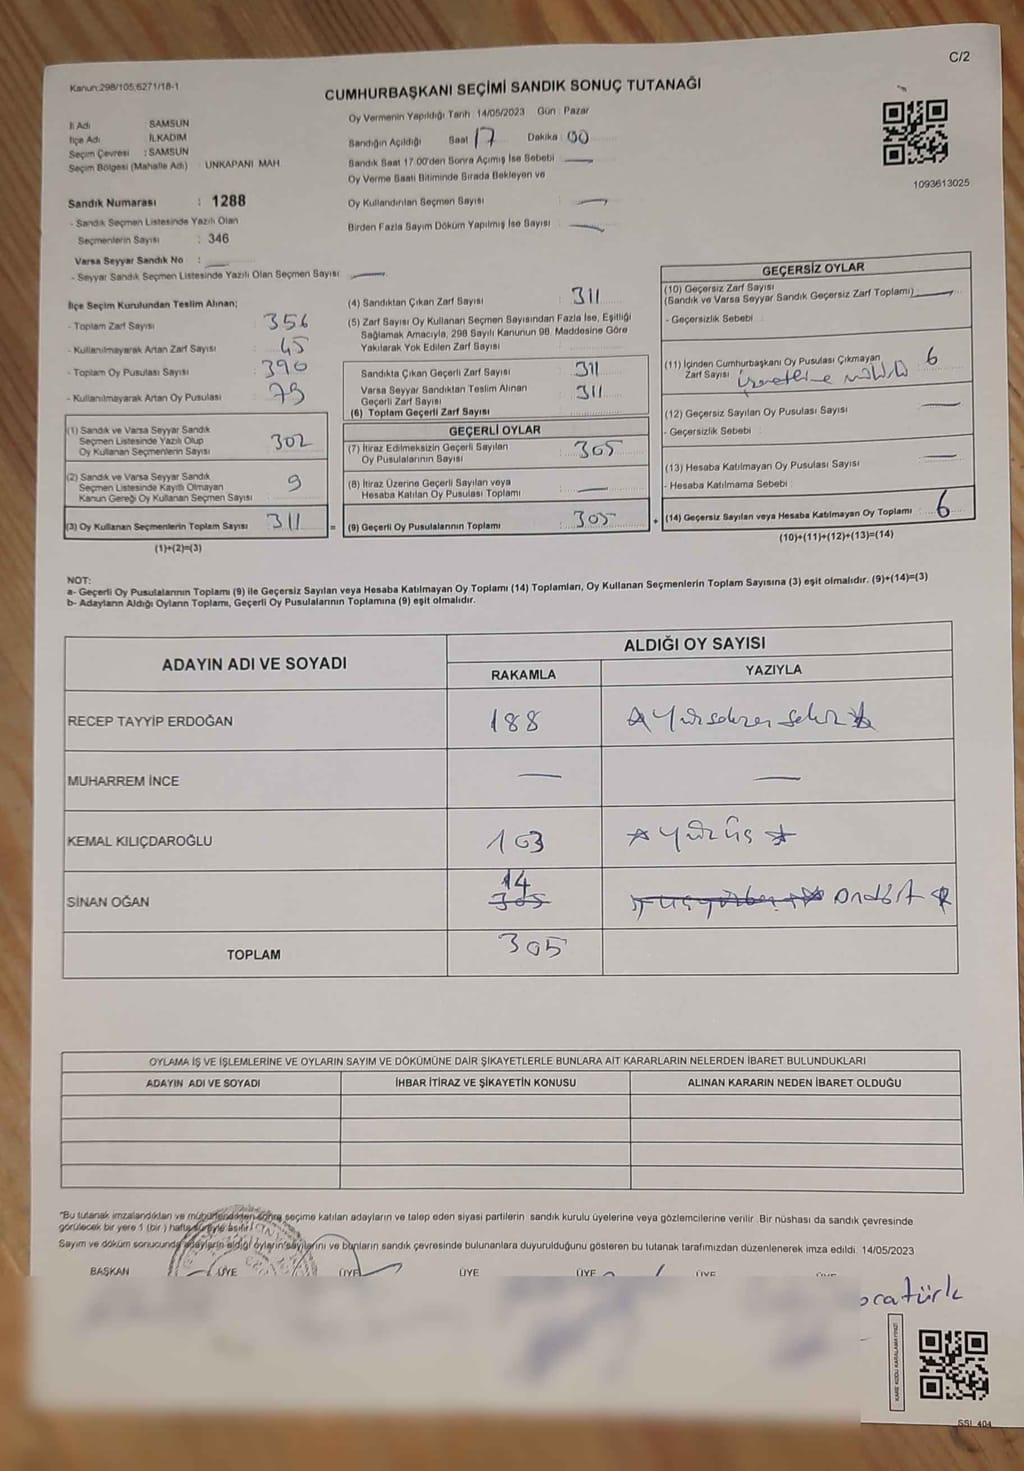 C/2
Kanun:298/105;6271/18-1
CUMHURBAŞKANI SEÇİMİ SANDIK SONUÇ TUTANAĞI
Oy Vermenin Yapıldığı Tarih :14/05/2023 Gün : Pazar
İl Adı : SAMSUN
İlçe Adı : İLKADIM
Seçim Çevresi : SAMSUN
Seçim Bölgesi (Mahalle Adı) : UNKAPANI MAH.
Sandığın Açıldığı Saat 17 Dakika : 00
Sandık Saat 17:00'den Sonra Açılmış İse Sebebi —
Oy Verme Saati Bitiminde Sırada Bekleyen ve
Oy Kullandırılan Seçmen Sayısı : —
Birden Fazla Sayım Döküm Yapılmış İse Sayısı : —
1093613025
Sandık Numarası : 1288
- Sandık Seçmen Listesinde Yazılı Olan
Seçmenlerin Sayısı : 346
Varsa Seyyar Sandık No : —
- Seyyar Sandık Seçmen Listesinde Yazılı Olan Seçmen Sayısı : —
İlçe Seçim Kurulundan Teslim Alınan;
- Toplam Zarf Sayısı : 356
- Kullanılmayarak Artan Zarf Sayısı : 45
- Toplam Oy Pusulası Sayısı : 390
- Kullanılmayarak Artan Oy Pusulası : 79
(1) Sandık ve Varsa Seyyar Sandık
Seçmen Listesinde Yazılı Olup
Oy Kullanan Seçmenlerin Sayısı : 302
(2) Sandık ve Varsa Seyyar Sandık
Seçmen Listesinde Kayıtlı Olmayan
Kanun Gereği Oy Kullanan Seçmen Sayısı : 9
(3) Oy Kullanan Seçmenlerin Toplam Sayısı : 311
(1)+(2)=(3)
(4) Sandıktan Çıkan Zarf Sayısı : 311
(5) Zarf Sayısı Oy Kullanan Seçmen Sayısından Fazla İse, Eşitliği
Sağlamak Amacıyla, 298 Sayılı Kanunun 98. Maddesine Göre
Yakılarak Yok Edilen Zarf Sayısı :
Sandıkta Çıkan Geçerli Zarf Sayısı : 311
Varsa Seyyar Sandıktan Teslim Alınan
Geçerli Zarf Sayısı : 311
(6) Toplam Geçerli Zarf Sayısı :
GEÇERLİ OYLAR
(7) İtiraz Edilmeksizin Geçerli Sayılan
Oy Pusulalarının Sayısı : 305
(8) İtiraz Üzerine Geçerli Sayılan veya
Hesaba Katılan Oy Pusulası Toplamı : —
= (9) Geçerli Oy Pusulalarının Toplamı : 305
GEÇERSİZ OYLAR
(10) Geçersiz Zarf Sayısı
(Sandık ve Varsa Seyyar Sandık Geçersiz Zarf Toplamı) —
- Geçersizlik Sebebi :
(11) İçinden Cumhurbaşkanı Oy Pusulası Çıkmayan
Zarf Sayısı : 6
(12) Geçersiz Sayılan Oy Pusulası Sayısı : —
- Geçersizlik Sebebi :
(13) Hesaba Katılmayan Oy Pusulası Sayısı : —
- Hesaba Katılmama Sebebi :
+ (14) Geçersiz Sayılan veya Hesaba Katılmayan Oy Toplamı : 6
(10)+(11)+(12)+(13)=(14)
NOT:
a- Geçerli Oy Pusulalarının Toplamı (9) ile Geçersiz Sayılan veya Hesaba Katılmayan Oy Toplamı (14) Toplamları, Oy Kullanan Seçmenlerin Toplam Sayısına (3) eşit olmalıdır. (9)+(14)=(3)
b- Adayların Aldığı Oyların Toplamı, Geçerli Oy Pusulalarının Toplamına (9) eşit olmalıdır.
ADAYIN ADI VE SOYADI ALDIĞI OY SAYISI
RAKAMLA YAZIYLA
RECEP TAYYİP ERDOĞAN 188 Yüzseksensekiz
MUHARREM İNCE — —
KEMAL KILIÇDAROĞLU 103 Yüzüç
SİNAN OĞAN 305 14 üçyüzbeş ondört
TOPLAM 305
OYLAMA İŞ VE İŞLEMLERİNE VE OYLARIN SAYIM VE DÖKÜMÜNE DAİR ŞİKAYETLERLE BUNLARA AİT KARARLARIN NELERDEN İBARET BULUNDUKLARI
ADAYIN ADI VE SOYADI İHBAR İTİRAZ VE ŞİKAYETİN KONUSU ALINAN KARARIN NEDEN İBARET OLDUĞU
"Bu tutanak imzalandıktan ve mühürlendikten sonra seçime katılan adayların ve talep eden siyasi partilerin sandık kurulu üyelerine veya gözlemcilerine verilir. Bir nüshası da sandık çevresinde
görülecek bir yere 1 (bir ) hafta süreyle asılır."
Sayım ve döküm sonucunda adayların aldığı oyların sayılarını ve bunların sandık çevresinde bulunanlara duyurulduğunu gösteren bu tutanak tarafımızdan düzenlenerek imza edildi. 14/05/2023
BAŞKAN ÜYE ÜYE ÜYE ÜYE ÜYE
KARE KODU KARALAMAYINIZ!
SSI_404